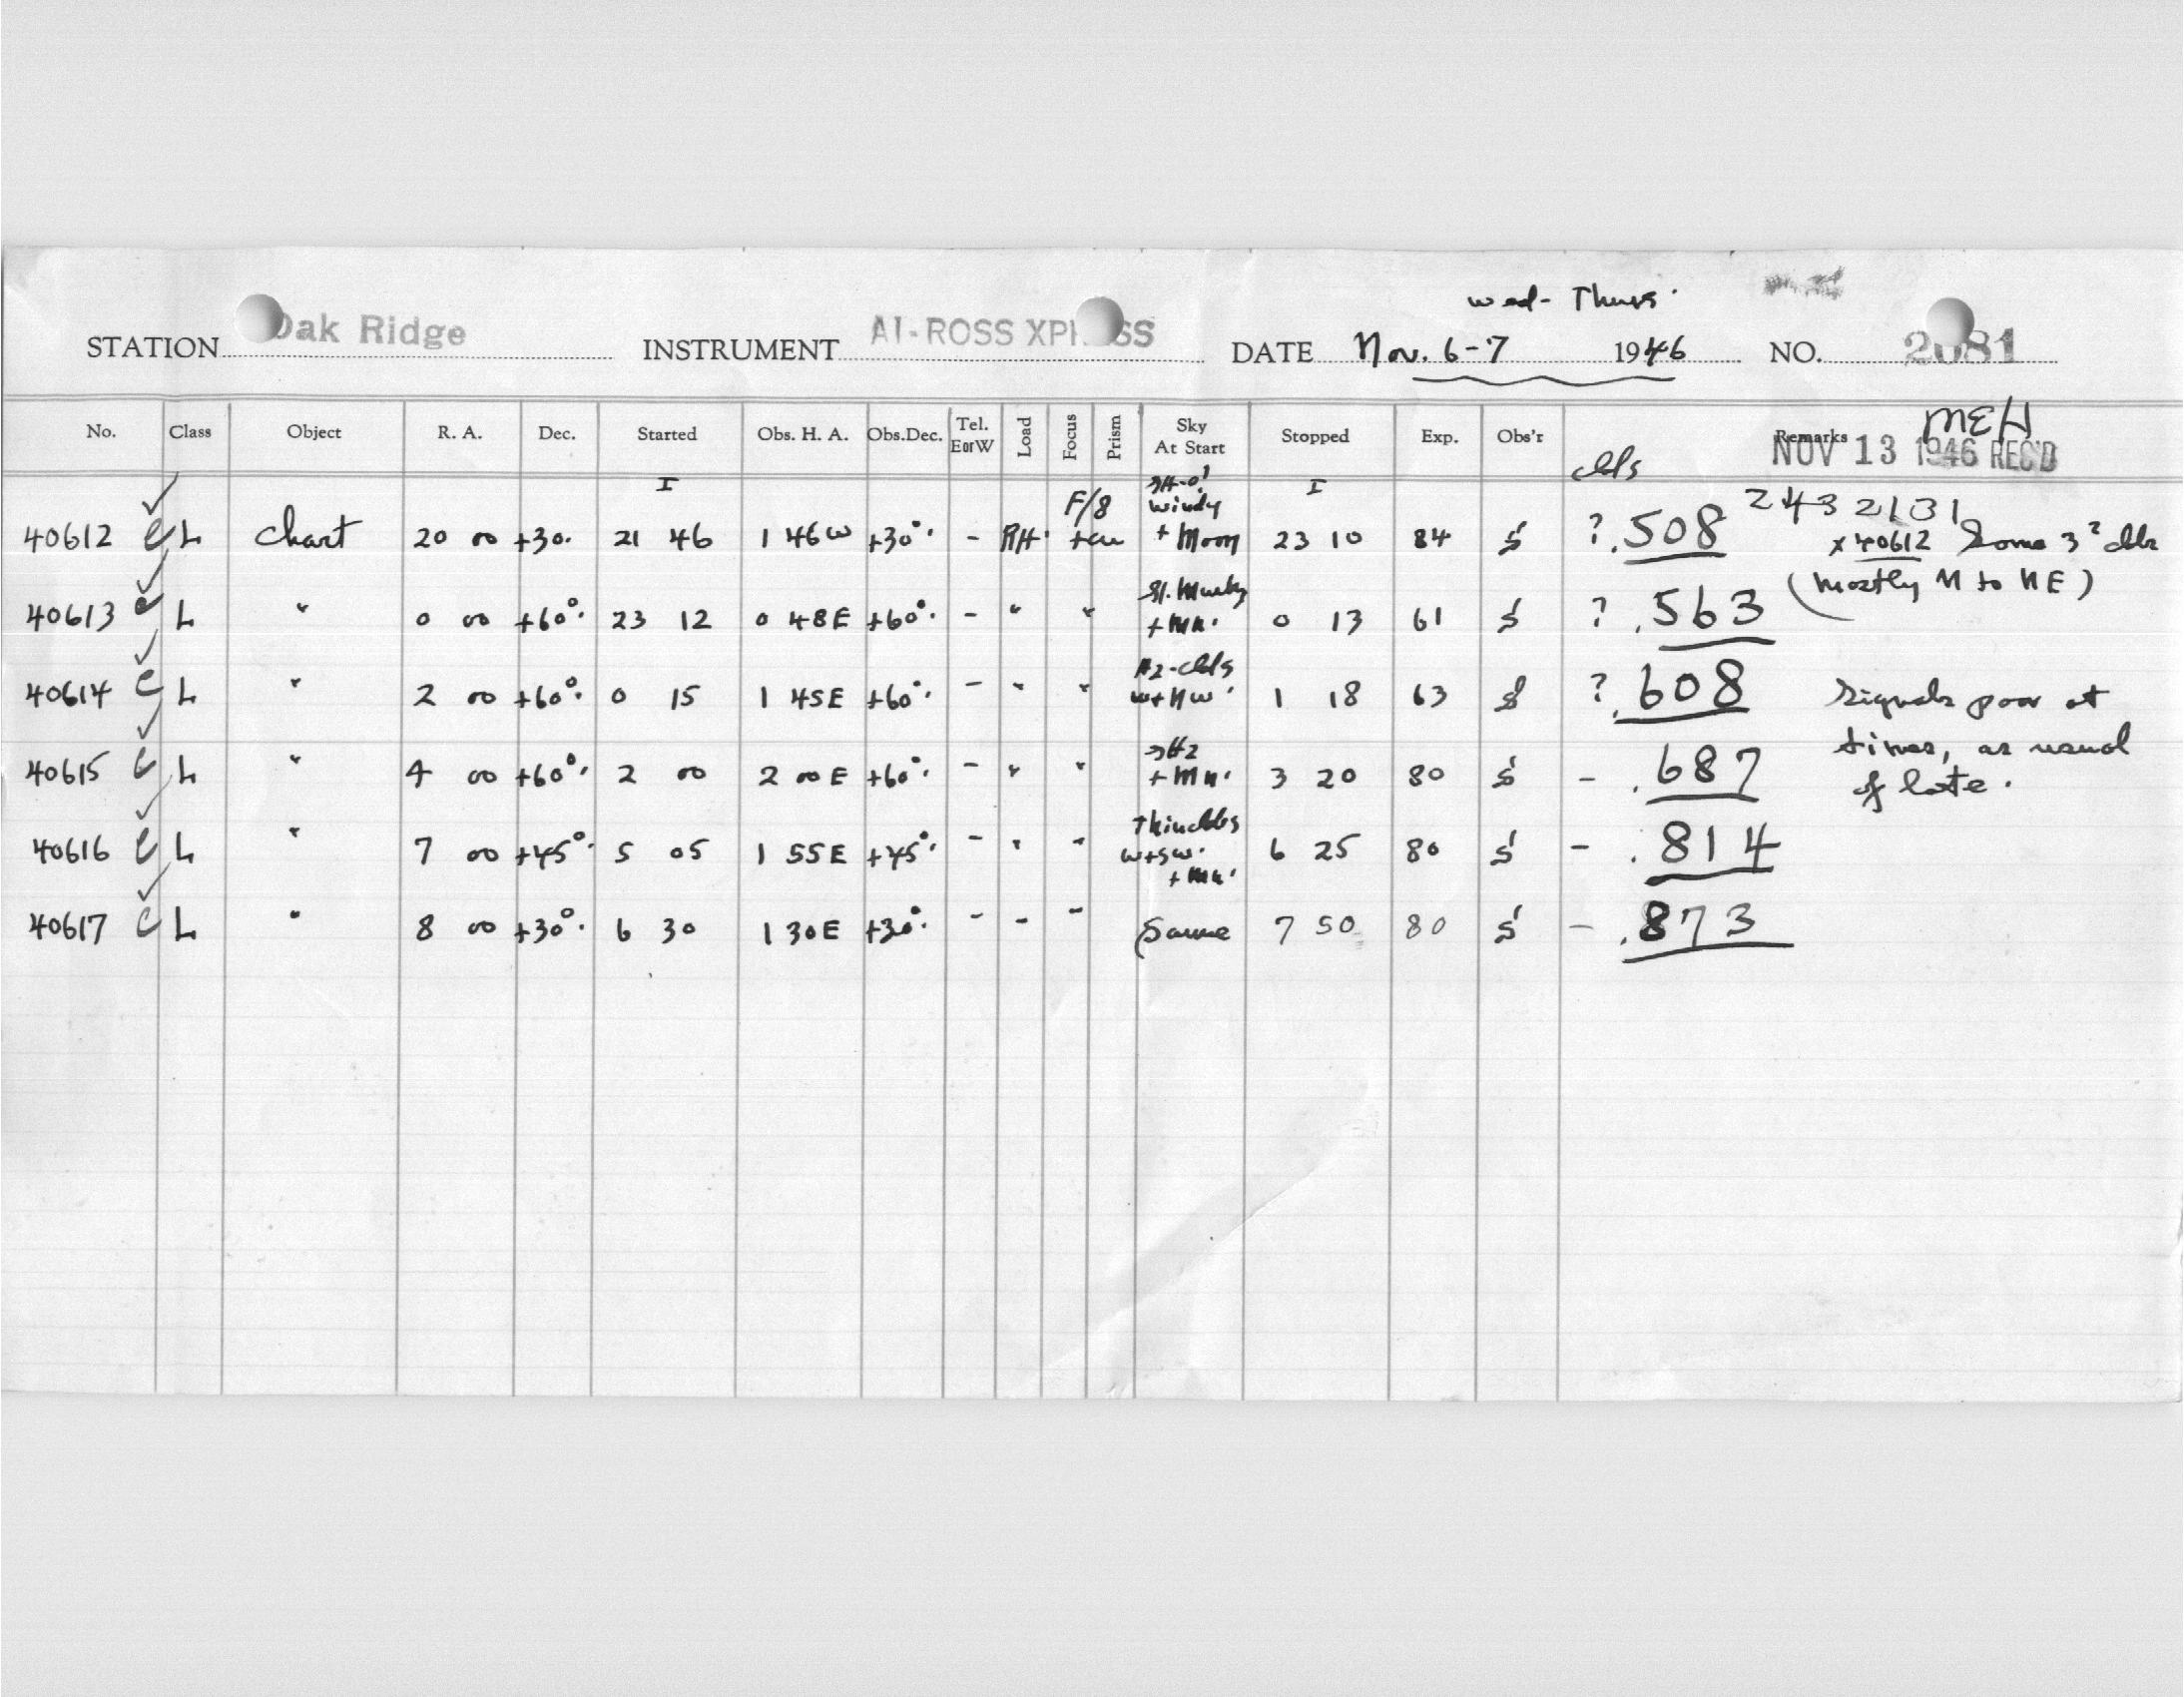 Wed - Thurs.
STATION Oak Ridge INSTRUMENT AI-ROSS XPRESS DATE Nov. 6-7 1946 NO. 2081
No. Class Object R. A. Dec. Started Obs. H. A. Obs.Dec. Tel. E or W Load Focus Prism Sky At Start Stopped Exp. Obs'r Remarks
MEH
NOV 13 1946 REC'D
clds
I I
40612 L Chart 20 00 +30° 21 46 1 46 W +30° - RH F/8 windy + Moon 23 10 84 S ? .508 2432131
x 40612 Some clds
(mostly N to NE)
40613 L " 0 00 +60° 23 12 0 48 E +60° - " " Sl. Murky + Mn. 0 13 61 S ? .563
40614 L " 2 00 +60° 0 15 1 45 E +60° - " " Hz-clds W + NW 1 18 63 S ? .608
Signals poor at
times, as usual
of late.
40615 L " 4 00 +60° 2 00 2 00 E +60° - " " + Mn. 3 20 80 S - .687
40616 L " 7 00 +45° 5 05 1 55 E +45° - " " Thin clds W + SW. + Mn. 6 25 80 S - .814
40617 L " 8 00 +30° 6 30 1 30 E +30° - - - Same 7 50 80 S - .873